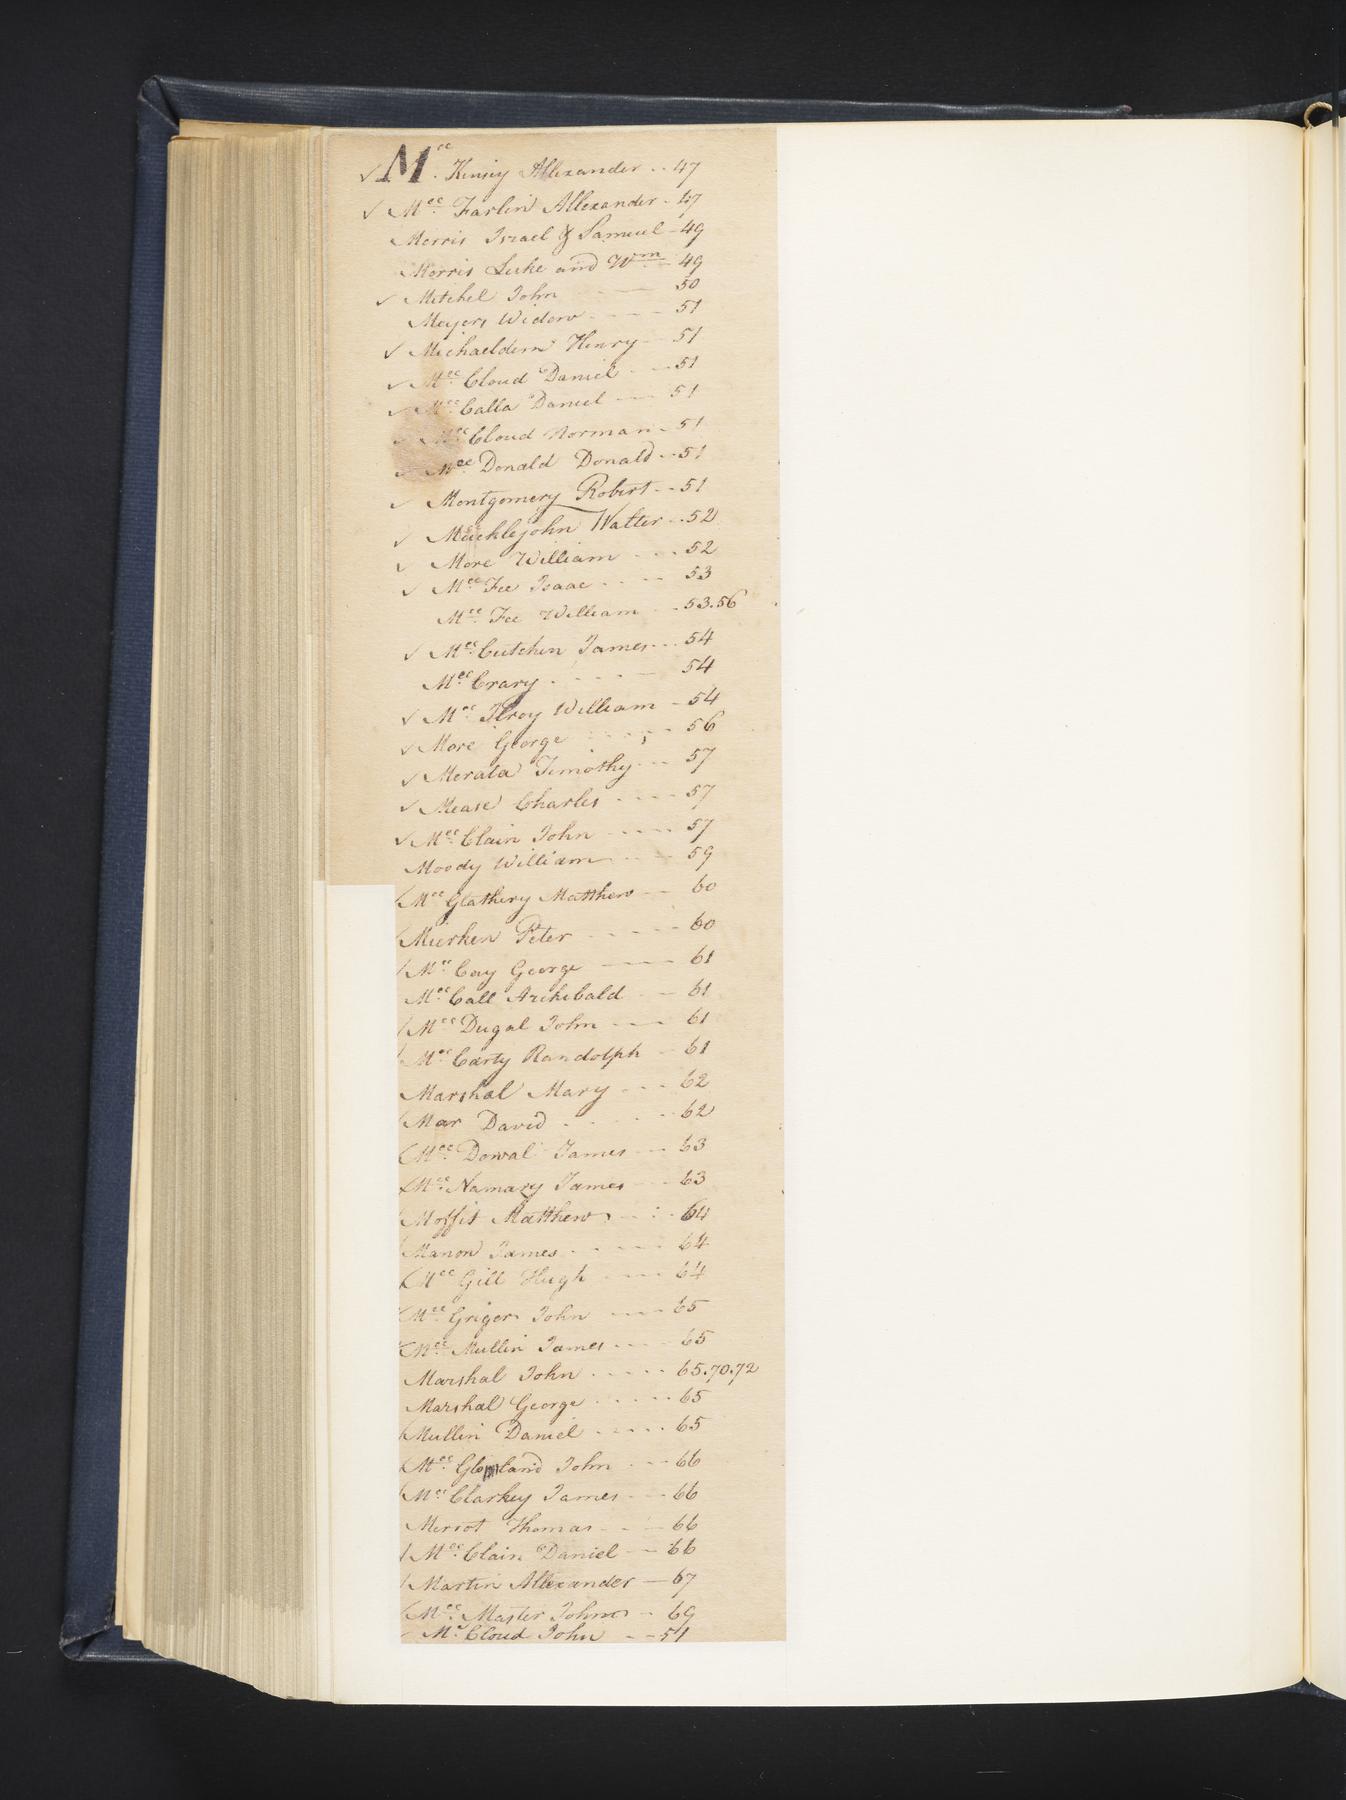 ✓ Mcc. Kinsey Allexander .. 47
✓ Mcc Farlin Allexander - 47
Morris Israel & Samuel - 49
Morris Luke and Wm - 49
✓ Mitchel John 50
Meyers Widow - - - - 51
✓ Michaeldorn Henry - 51
✓ Mcc Cloud Daniel - - 51
✓ Mcc Calla Daniel - - - 51
✓ Mcc Cloud Norman - 51
✓ Mcc Donald Donald - - 51
✓ Montgomery Robert - - 51
✓ Mucklejohn Walter - - 52
✓ More William - - - 52
✓ Mcc Fee Isaac - - - - 53
Mcc Fee William - - 53.56
✓ Mcc Cutchen James - - - 54
Mcc Crary - - - - 54
✓ Mcc Ilroy William - 54
✓ More George - - - - 56
✓ Merata Timothy - - - 57
✓ Mease Charles - - - - 57
✓ Mcc Clain John - - - - 57
Moody William - - - 59
✓ Mcc Glathery Matthew - - 60
✓ Mierken Peter - - - - - 60
✓ Mcc Coy George - - - 61
Mcc Call Archibald - - 61
✓ Mcc Dugal John - - - 61
✓ Mcc Carty Randolph - 61
Marshal Mary - - - 62
✓ Mar David - - - - 62
✓ Mcc Dowal James - - 63
✓ Mcc Namary James - - 63
✓ Moffit Matthew - - : - 64
✓ Manon James - - - - - 64
✓ Mcc Gill Hugh - - - - 64
✓ Mcc Griger John - - - - 65
✓ Mcc Mullin James - - - - 65
Marshal John - - - - - 65.70.72
Marshal George - - - - - 65
✓ Mullin Daniel - - - - - 65
✓ Mcc John - - - 66
✓ Mcc Clarkey James - - - 66
Merrot Thomas - - - 66
✓ Mcc Clain Daniel - - 66
✓ Martin Allexander - 67
✓ Mcc Master John - 69
✓ Mc Cloud John - - 51